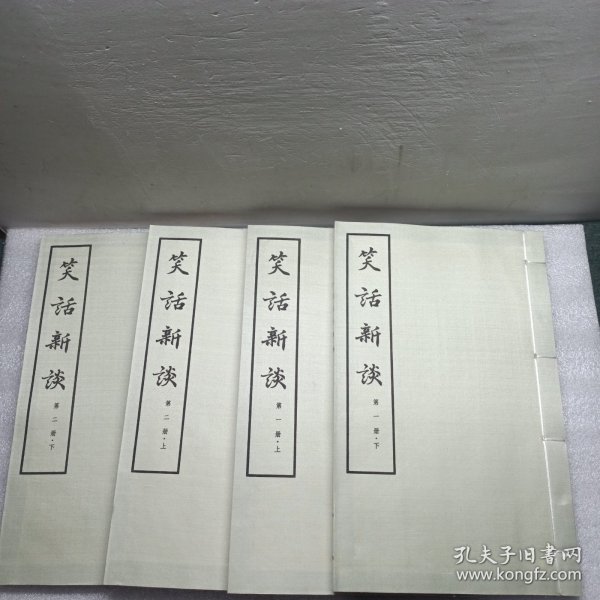 笑話新談
第二册·下
笑話新談
第二册·上
笑話新談
第一册·上
笑話新談
第一册·下
孔夫子旧书网
www.kongfz.com